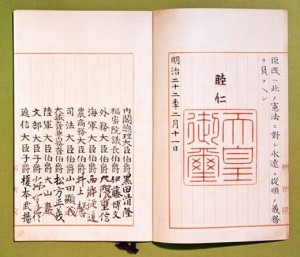 臣民ハ此ノ憲法ニ對シ永遠ニ從順ノ義務
ヲ負フヘシ
睦仁
天皇御璽
明治二十二年二月十一日
内閣總理大臣伯爵黒田清隆
樞密院議長伯爵伊藤博文
外務大臣伯爵大隈重信
海軍大臣伯爵西郷從道
農商務大臣伯爵井上馨
司法大臣伯爵山田顯義
大藏大臣兼内務大臣伯爵松方正義
陸軍大臣伯爵大山巖
文部大臣子爵森有禮
遞信大臣子爵榎本武揚